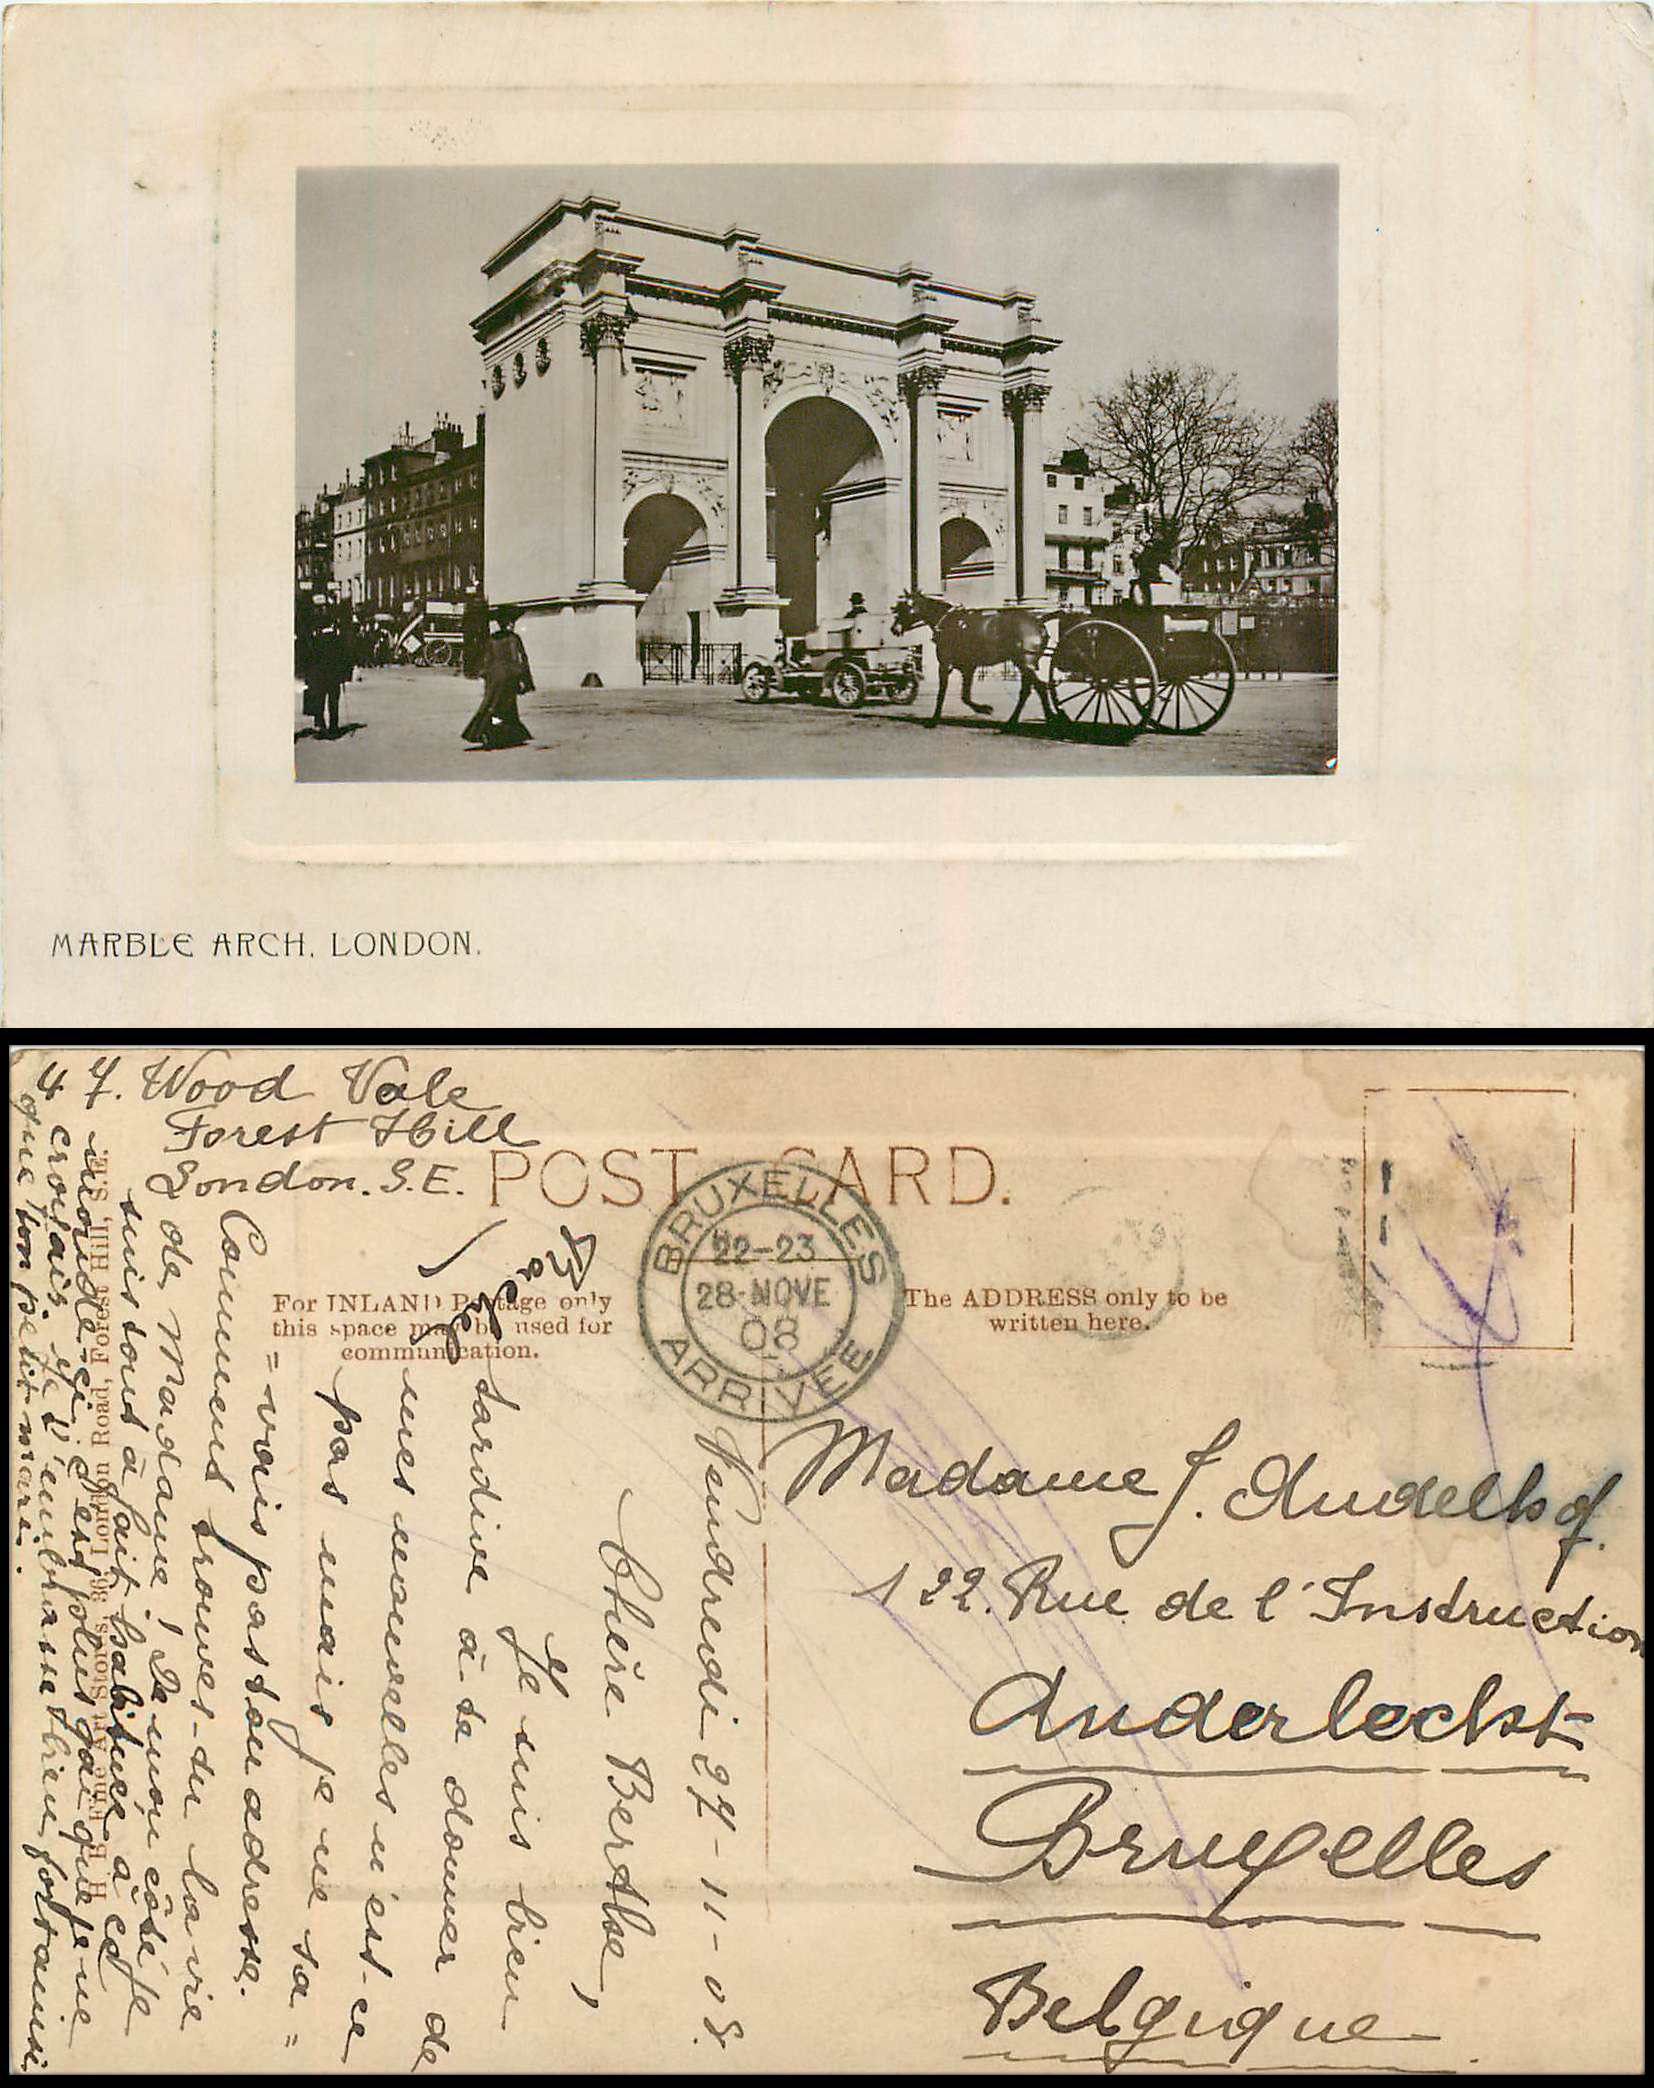 MARBLE ARCH, LONDON.
47. Wood Vale
Forest Hill
London. S.E.
POST CARD.
For INLAND Postage only
this space may be used for
communication.
The ADDRESS only to be
written here.
BRUXELLES
22-23
28 NOVE
08
ARRIVEE
Madame J. Andelhof.
122. Rue de l'Instruction
Anderlecht
Bruxelles
Belgique
Vendredi 27-11-08.
Chère Berthe,
Je suis bien
tardive à te donner de
mes nouvelles n'est-ce
pas mais je ne sa=
=vais pas ton adresse.
Comment trouves-tu la vie
de Madame, De mon côté je
suis tout à fait habituée à cet
monde-ci c'est plus gai que je ne
croyais. Je t'embrasse bien fort ainsi
que ton petit mari.
Fine Art Stores, 36, London Road, Forest Hill, S.E.